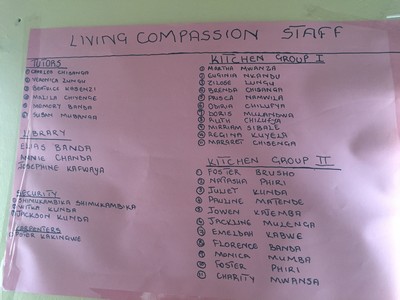 LIVING COMPASSION STAFF
TUTORS
CHARLES CHIBANGA
VERONICA ZUNGU
BEATRICE KABENZI
MALILA CHISENGE
SHEMERY BANDA
SUSAN MUBANGA
LIBRARY
ELIAS BANDA
MANIE CHANDA
JOSEPHINE KAPWAYA
SECURITY
SHIMUKAMBIKA SHIMUKAMBIKA
KUNDA
JACKSON KUNDA
CARPENTERS
KAKINGWE
KITCHEN GROUP I
① MARTHA MWANZA
② EUGINIA NKANDU
③ ZILOSE LUNGU
④ BRENDA CHIBANGA
⑤ PRISCA NAMWILA
⑥ ODIRIA CHILUFYA
⑦ DORIS MULANDWA
⑧ RUTH CHILUFYA
⑨ MIRRIAM SIBALE
⑩ REGINA KUYELA
⑪ MARGRET CHISENGA
KITCHEN GROUP II
① FOSTER BRUSHO
② NATASHA PHIRI
③ JULIET KUNDA
④ PAULINE MATENDE
⑤ JOWEN KATEMBA
⑥ JACKLINE MULENGA
⑦ EMELDAH KABWE
⑧ FLORENCE BANDA
⑨ MONICA MUMBA
⑩ FOSTER PHIRI
⑪ CHARITY MWANSA